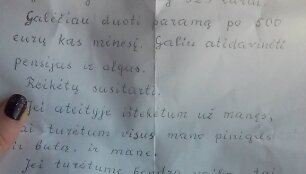 Galėčiau duoti paramą po 500
eurų kas mėnesį. Galiu atidavinėti
pensijas ir algas.
Reikėtų susitarti.
Jei ateityje ištekėtum už manęs,
tai turėtum visus mano pinigus
ir butą, ir mane.
Jei turėtume bendrą